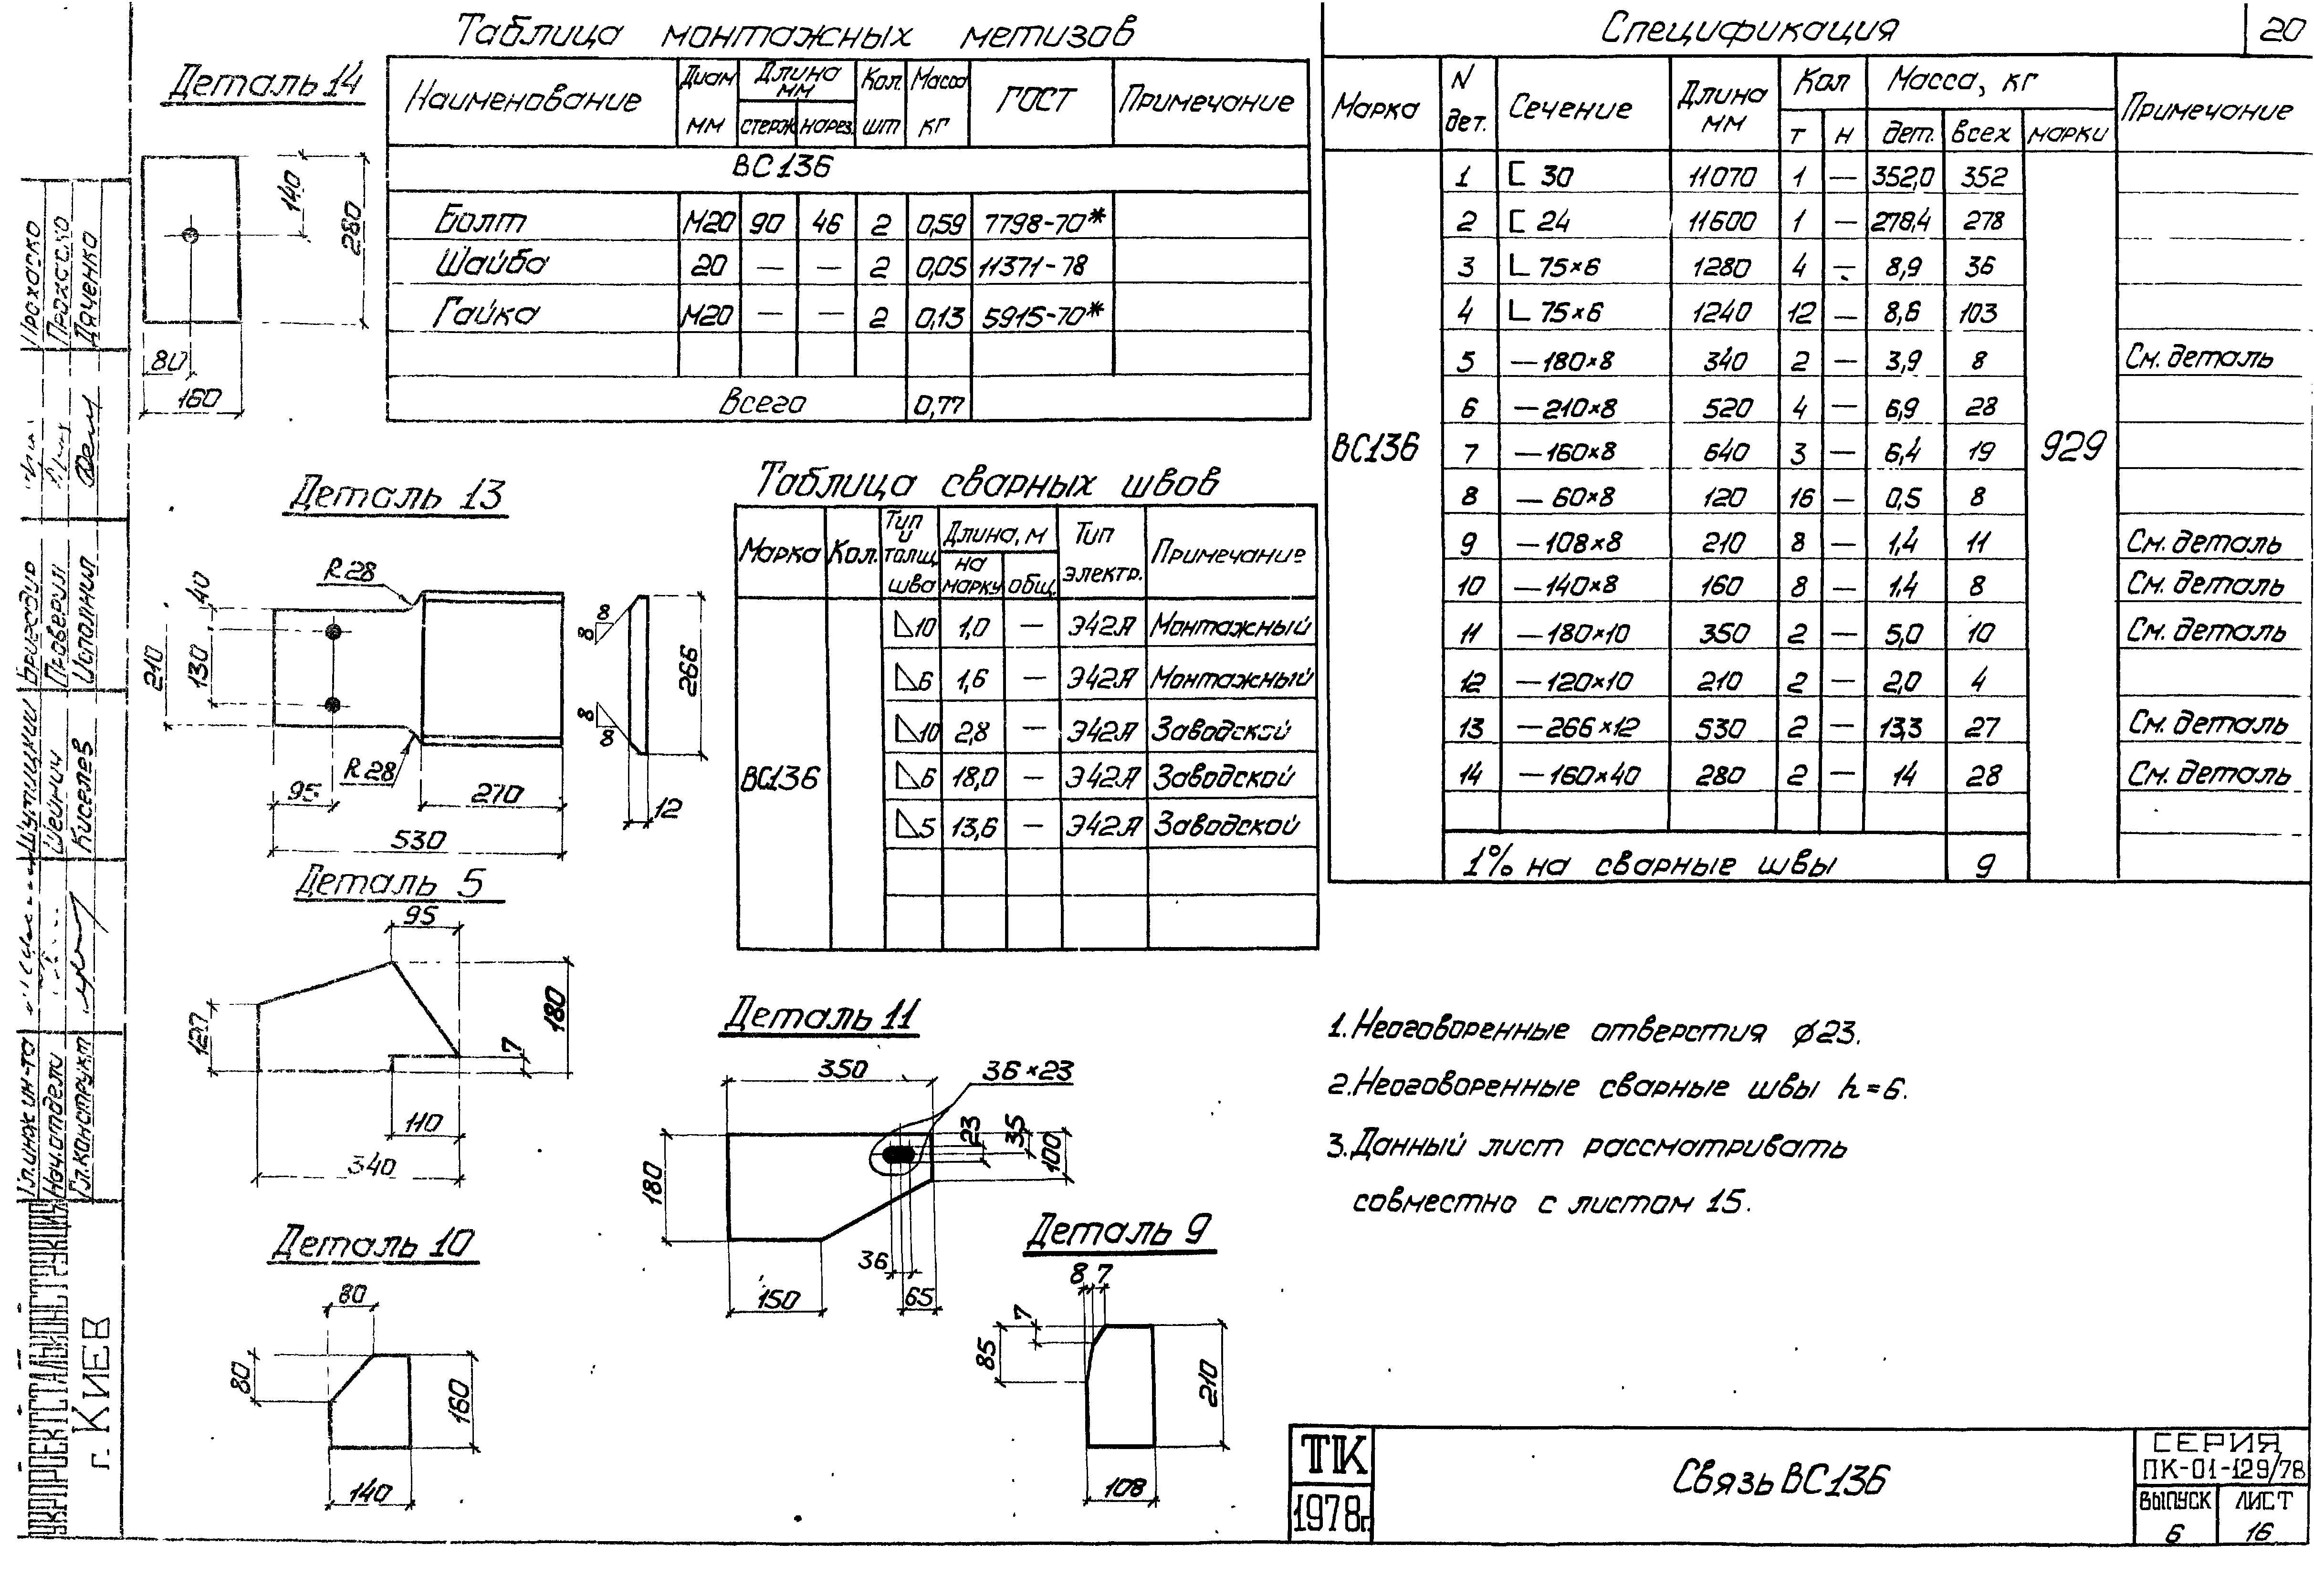 20
Таблица монтажных метизов
Наименование Диам мм Длина мм стерж. нарез. Кол. шт Масса кг ГОСТ Примечание
ВС136
Болт М20 90 46 2 0,59 7798-70*
Шайба 20 — — 2 0,05 11371-78
Гайка М20 — — 2 0,13 5915-70*
Всего 0,77
Спецификация
Марка N дет. Сечение Длина мм Кол т н Масса, кг дет. всех марки Примечание
ВС136 929
1 [ 30 11070 1 — 352,0 352
2 [ 24 11600 1 — 278,4 278
3 L 75×6 1280 4 — 8,9 36
4 L 75×6 1240 12 — 8,6 103
5 —180×8 340 2 — 3,9 8 См. деталь
6 —210×8 520 4 — 6,9 28
7 —160×8 640 3 — 6,4 19
8 — 60×8 120 16 — 0,5 8
9 —108×8 210 8 — 1,4 11 См. деталь
10 —140×8 160 8 — 1,4 8 См. деталь
11 —180×10 350 2 — 5,0 10 См. деталь
12 —120×10 210 2 — 2,0 4
13 —266×12 530 2 — 13,3 27 См. деталь
14 —160×40 280 2 — 14 28 См. деталь
1% на сварные швы 9
Таблица сварных швов
Марка Кол. Тип и толщ. шва Длина, м на марку общ. Тип электр. Примечание
ВС136
◺10 1,0 — Э42А Монтажный
◺6 1,6 — Э42А Монтажный
◺10 2,8 — Э42А Заводской
◺6 18,0 — Э42А Заводской
◺5 13,6 — Э42А Заводской
Деталь 14
140
280
80
160
Деталь 13
R28
40
130
210
R28
95
270
530
8
8
8
8
266
12
Деталь 5
95
120
180
7
110
340
Деталь 10
80
80
160
140
Деталь 11
350
36×23
23
35
100
180
36
65
150
Деталь 9
8 7
7
85
210
108
1. Неоговоренные отверстия ф23.
2. Неоговоренные сварные швы h=6.
3. Данный лист рассматривать
совместно с листом 15.
ТК
1978г.
Связь ВС136
СЕРИЯ
ПК-01-129/78
ВЫПУСК
6
ЛИСТ
16
УКРПРОЕКТСТАЛЬКОНСТРУКЦИЯ
г. КИЕВ
Гл. инж. ин-та Шутицкий
Нач. отдела Шейнич
Гл. конструкт Киселев
Бригадир Прохаско
Проверил Прохаско
Исполнил Дяченко